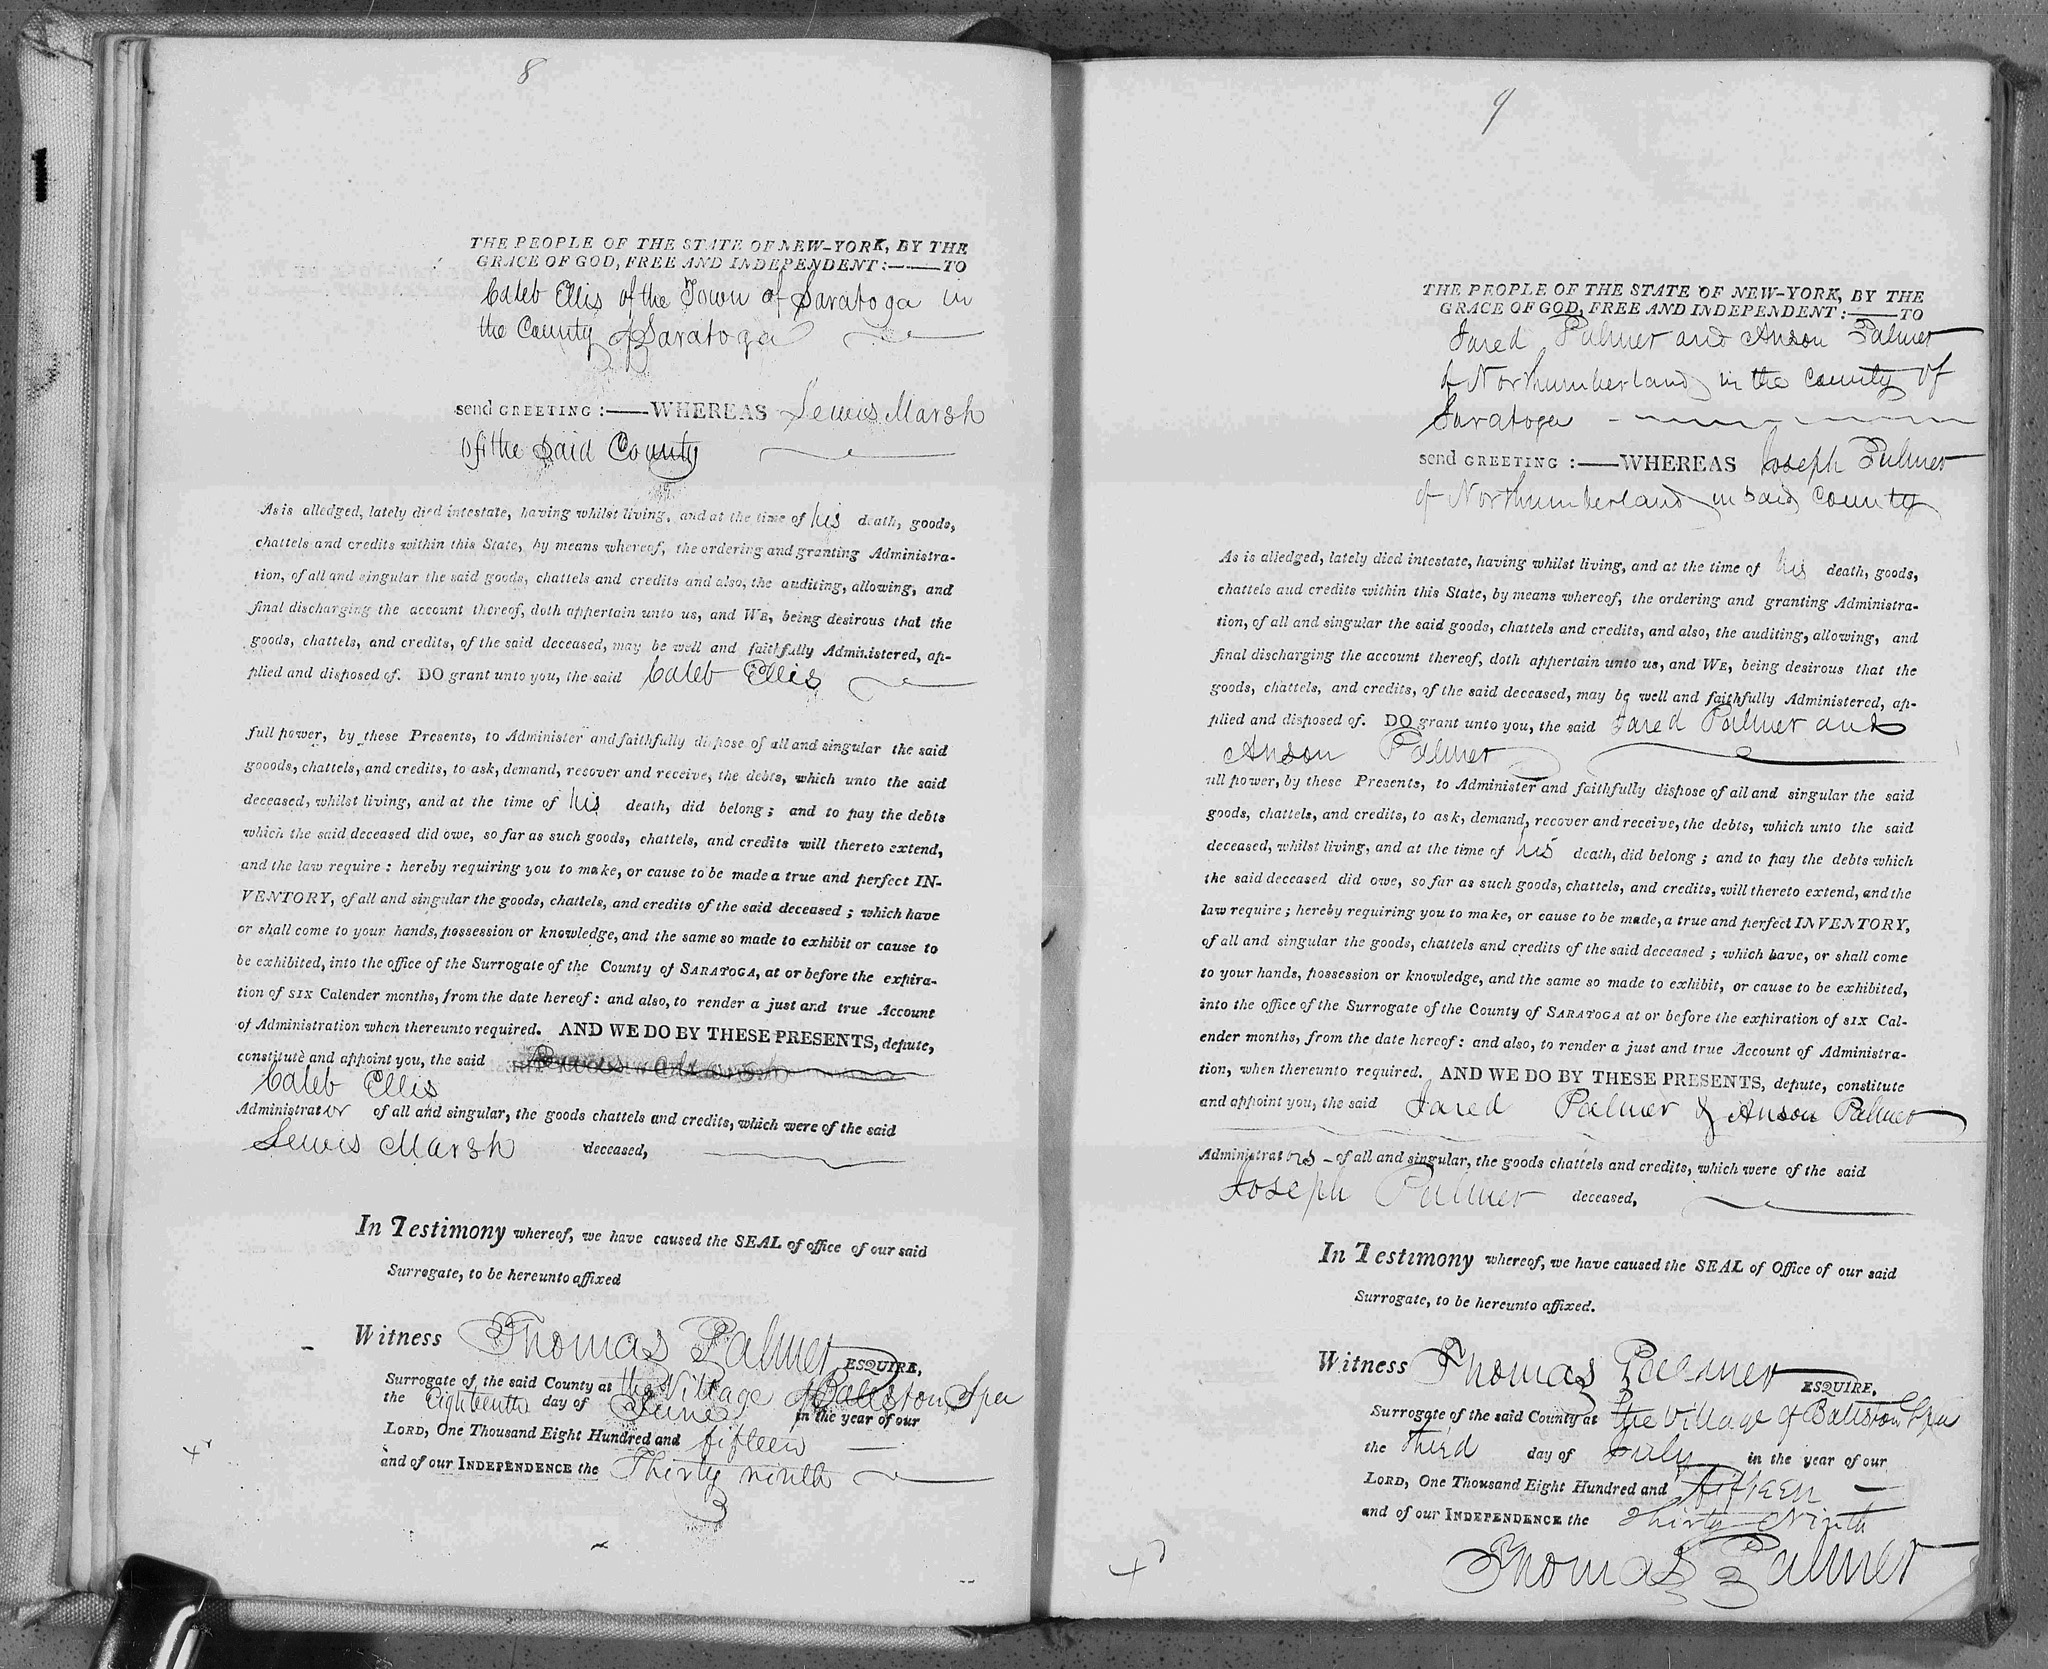 8
THE PEOPLE OF THE STATE OF NEW-YORK, BY THE
GRACE OF GOD, FREE AND INDEPENDENT:——TO
Caleb Ellis of the Town of Saratoga in
the County of Saratoga
send GREETING:——WHEREAS Lewis Marsh
of the said County
As is alledged, lately died intestate, having whilst living, and at the time of his death, goods,
chattels and credits within this State, by means whereof, the ordering and granting Administra-
tion, of all and singular the said goods, chattels and credits and also, the auditing, allowing, and
final discharging the account thereof, doth appertain unto us, and WE, being desirous that the
goods, chattels, and credits, of the said deceased, may be well and faithfully Administered, ap-
plied and disposed of. DO grant unto you, the said Caleb Ellis
full power, by these Presents, to Administer and faithfully dispose of all and singular the said
gooods, chattels, and credits, to ask, demand, recover and receive, the debts, which unto the said
deceased, whilst living, and at the time of his death, did belong; and to pay the debts
which the said deceased did owe, so far as such goods, chattels, and credits will thereto extend,
and the law require: hereby requiring you to make, or cause to be made a true and perfect IN-
VENTORY, of all and singular the goods, chattels, and credits of the said deceased; which have
or shall come to your hands, possession or knowledge, and the same so made to exhibit or cause to
be exhibited, into the office of the Surrogate of the County of SARATOGA, at or before the expira-
tion of SIX Calender months, from the date hereof: and also, to render a just and true Account
of Administration when thereunto required. AND WE DO BY THESE PRESENTS, depute,
constitute and appoint you, the said Lewis Marsh
Caleb Ellis
Administrator of all and singular, the goods chattels and credits, which were of the said
Lewis Marsh deceased,
In Testimony whereof, we have caused the SEAL of office of our said
Surrogate, to be hereunto affixed
Witness Thomas Palmer ESQUIRE,
Surrogate of the said County at the Village of Ballston Spa
the Eighteenth day of June in the year of our
LORD, One Thousand Eight Hundred and fifteen
and of our INDEPENDENCE the Thirty ninth
9
THE PEOPLE OF THE STATE OF NEW-YORK, BY THE
GRACE OF GOD, FREE AND INDEPENDENT:——TO
Jared Palmer and Anson Palmer
of Northumberland in the county of
Saratoga
send GREETING:——WHEREAS Joseph Palmer
of Northumberland in said County
As is alledged, lately died intestate, having whilst living, and at the time of his death, goods,
chattels and credits within this State, by means whereof, the ordering and granting Administra-
tion, of all and singular the said goods, chattels and credits, and also, the auditing, allowing, and
final discharging the account thereof, doth appertain unto us, and WE, being desirous that the
goods, chattels, and credits, of the said deceased, may be well and faithfully Administered, ap-
plied and disposed of. DO grant unto you, the said Jared Palmer and
Anson Palmer
ull power, by these Presents, to Administer and faithfully dispose of all and singular the said
goods, chattels, and credits, to ask, demand, recover and receive, the debts, which unto the said
deceased, whilst living, and at the time of his death, did belong; and to pay the debts which
the said deceased did owe, so far as such goods, chattels, and credits, will thereto extend, and the
law require; hereby requiring you to make, or cause to be made, a true and perfect INVENTORY,
of all and singular the goods, chattels and credits of the said deceased; which have, or shall come
to your hands, possession or knowledge, and the same so made to exhibit, or cause to be exhibited,
into the office of the Surrogate of the County of SARATOGA at or before the expiration of SIX Cal-
ender months, from the date hereof: and also, to render a just and true Account of Administra-
tion, when thereunto required. AND WE DO BY THESE PRESENTS, depute, constitute
and appoint you, the said Jared Palmer & Anson Palmer
Administrators of all and singular, the goods chattels and credits, which were of the said
Joseph Palmer deceased,
In Testimony whereof, we have caused the SEAL of Office of our said
Surrogate, to be hereunto affixed.
Witness Thomas Palmer ESQUIRE,
Surrogate of the said County at the Village of Ballston Spa
the third day of July in the year of our
LORD, One Thousand Eight Hundred and fifteen
and of our INDEPENDENCE the Thirty Ninth
Thomas Palmer